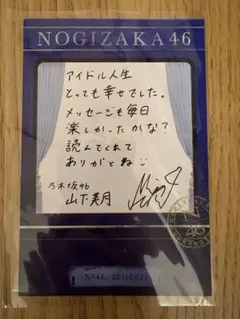 NOGIZAKA46
アイドル人生
とっても幸せでした。
メッセージも毎日
楽しかったかな?
読んでくれて
ありがとね
乃木坂46
山下美月
N
46